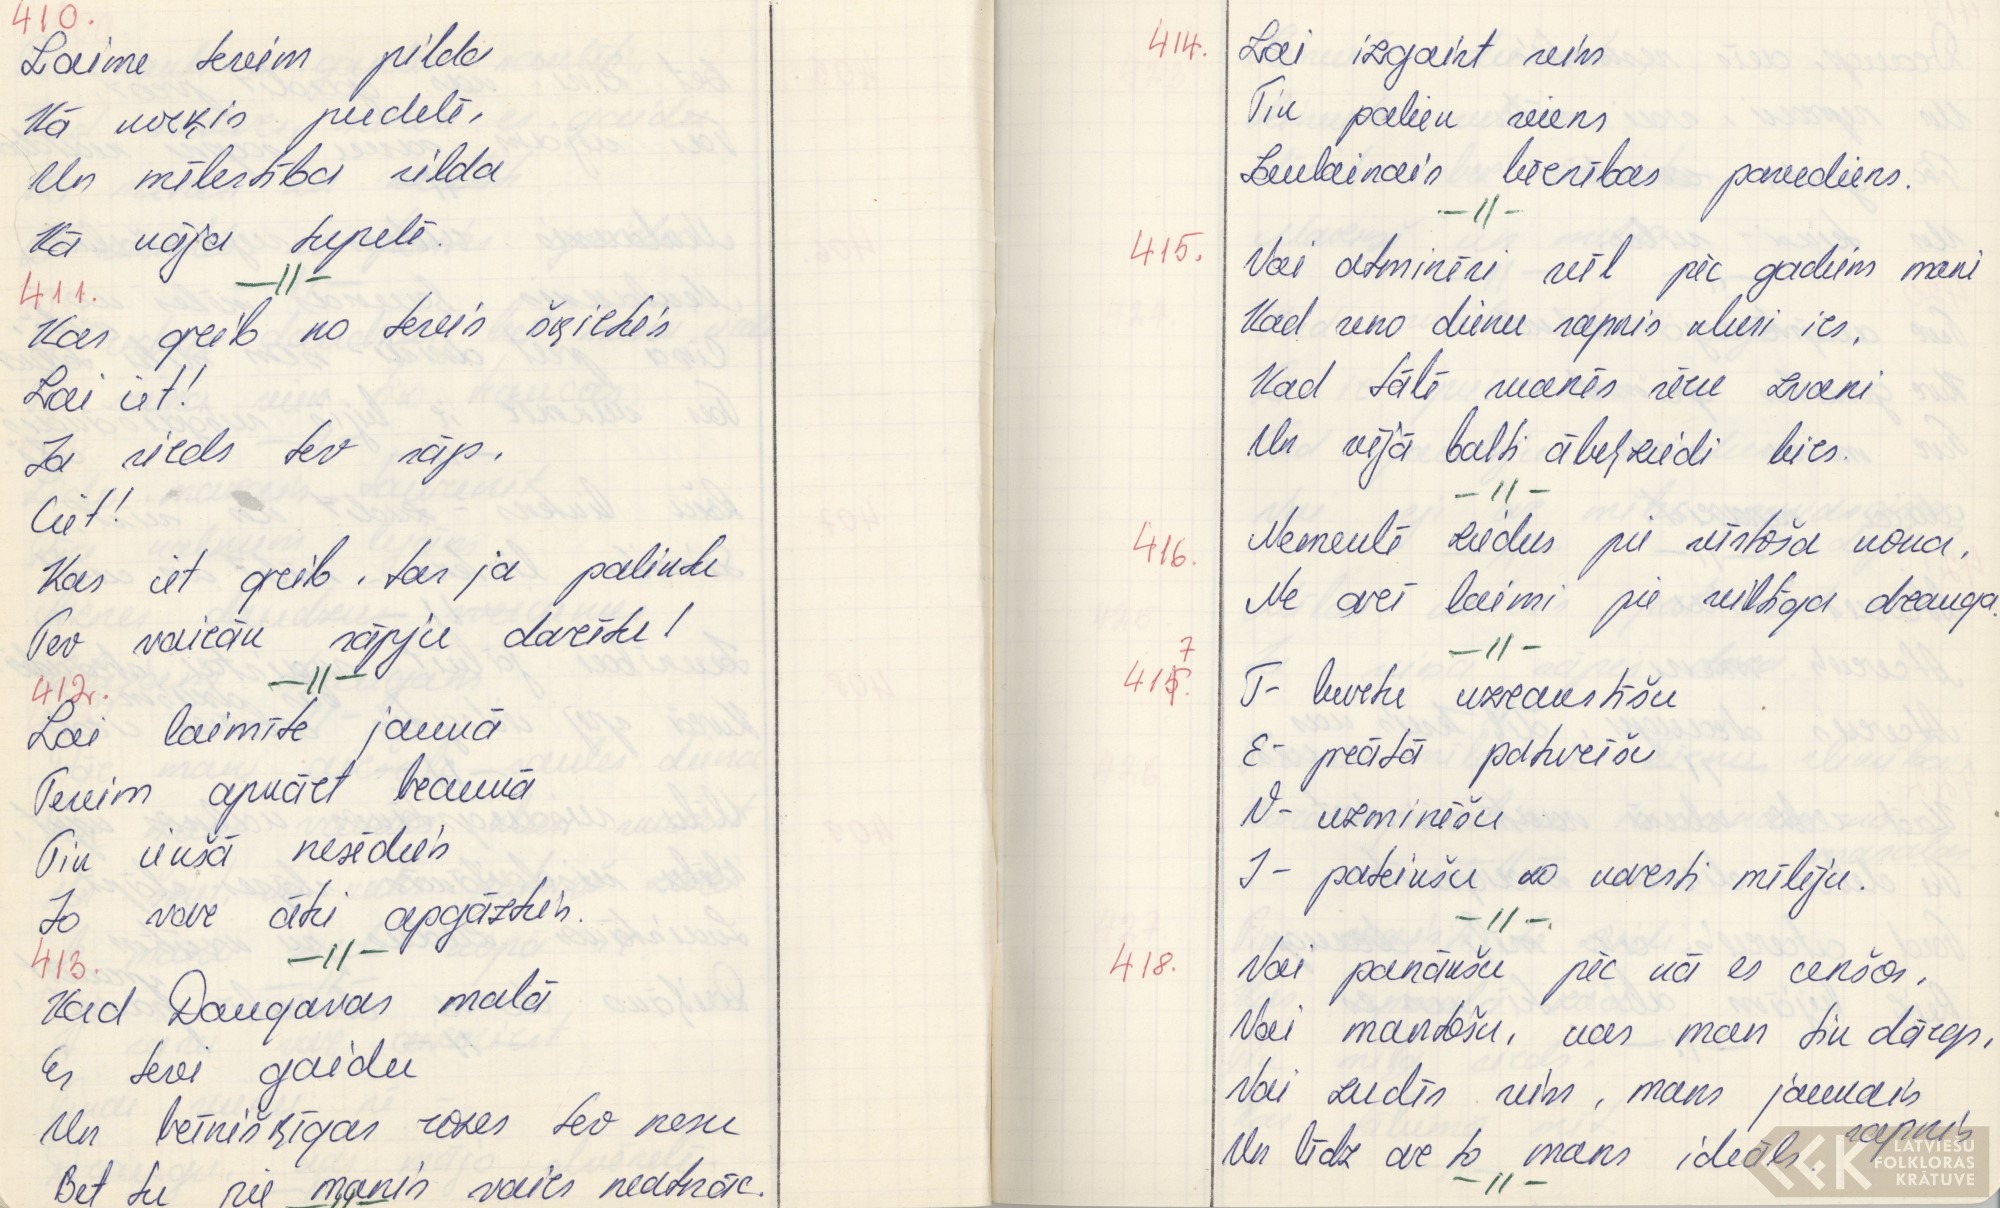 410.
Laime tevim pilda
Kā korķis pudelē,
Un mīlestība silda
Kā kāja tupelē.
-//-
411.
Kas grib no tevis šķirties
Lai iet!
Ja sirds tev sāp,
Ciet!
Kas iet grib, tas ja paliktu
Tev vairāk sāpju darītu!
-//-
412.
Lai laimīte jaukā
Tevim apkārt braukā
Tik iekšā nesēdies
Jo var ātri apgāzties.
-//-
413.
Kad Daugavas malā
Es tevi gaidu
Un brīnišķīgas rozes tev nesu
Bet tu pie manis vairs nedtnāc.
-//-
414. Lai izgaist viss
Tik paliek viens
Laulainais bērnības pavediens.
-//-
415. Vai atminēsi vēl pēc gadiem mani
Kad seno dienu sapnis klusi ies,
Kad tālē skanēs sēru zvani
Un vējā balti ābeļziedi birs.
-//-
416. Nemeklē ziedus pie vīstoša koka,
Ne arī laimi pie viltīga drauga.
-//-
417. T- burtu uzrakstīšu
E- prātā paturēšu
V- uzminēšu
I- pateikšu ko karsti mīlēju.
-//-
418. Vai panākšu pēc kā es cenšos,
Vai mantošu, kas man tik dārgs,
Vai zudīs viss, mans jaunais
sapnis
Un līdz ar to mans ideāls.
-//-
LATVIEŠU
FOLKLORAS
KRĀTUVE